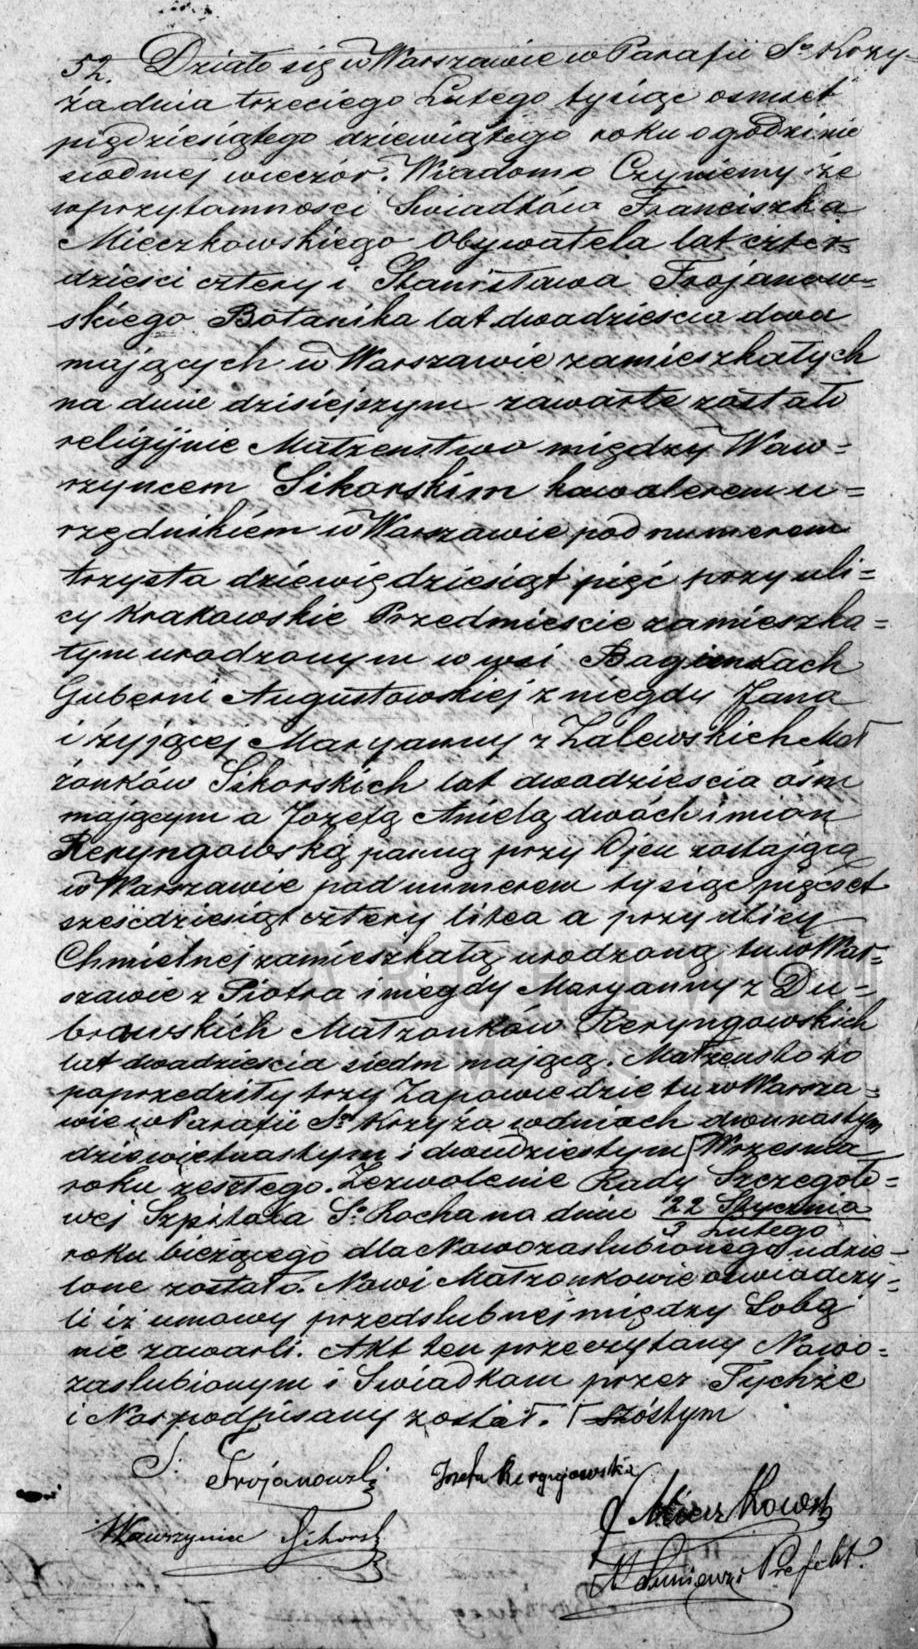 52. Działo się w Warszawie w Parafii Sº Krzy-
ża dnia trzeciego Lutego tysiąc osmset
pięćdziesiątego dziewiątego roku o godzinie
siodmej wieczór. Wiadomo Czyniemy że
w przytomności Swiadków Franciszka
Mieczkowskiego Obywatela lat czter-
dzieści cztery i Stanisława Trojanow-
skiego Botanika lat dwadzieścia dwa
mających w Warszawie zamieszkałych
na dniu dzisiejszym zawarte zostało
religijnie Małżenstwo między Waw=
rzyncem Sikorskim kawalerem u=
rzędnikiem w Warszawie pod numerem
trzysta dziewięćdziesiąt pięć przy uli=
cy Krakowskie Przedmieście zamieszka=
łym urodzonym w wsi Bagienkach
Guberni Augustowskiej z niegdy Jana
i żyjącej Maryanny z Zalewskich Mał
żonków Sikorskich lat dwadzieścia ośm
mającym a Jozefą Anielą dwóch imion
Reryngowską panną przy Ojcu zostającą
w Warszawie pod numerem tysiąc pięćset
sześćdziesiąt cztery litea a przy ulicy
Chmielnej zamieszkałą, urodzoną tu w War=
szawie z Piotra i niegdy Maryanny z Du=
browskich Małżonków Reryngowskich
lat dwadzieścia siedm mającą. Małżeństwo to
poprzedziły trzy Zapowiedzie tu w Warsza=
wie w Parafii Sº Krzyża w dniach dwunastym
dziewietnastym i dwudziestym Wrzesnia
roku zeszłego. Zezwolenie Rady Szczegóło=
wej Szpitala Sº Rocha na dniu 22 Stycznia
3 Lutego
roku bieżącego dla Nowozaslubionego udzie-
lone zostało. Nowi Małżonkowie oświadczy-
li iż umowy przedslubnej między Sobą
nie zawarli. Akt ten przeczytany Nowo=
zaslubionym i Swiadkom przez Tychże
i Nas podpisany został. szóstym
S. Trojanowski Jozefa Reryngowska
F Mieczkowski
Wawrzyniec Sikorski
Prefekt.